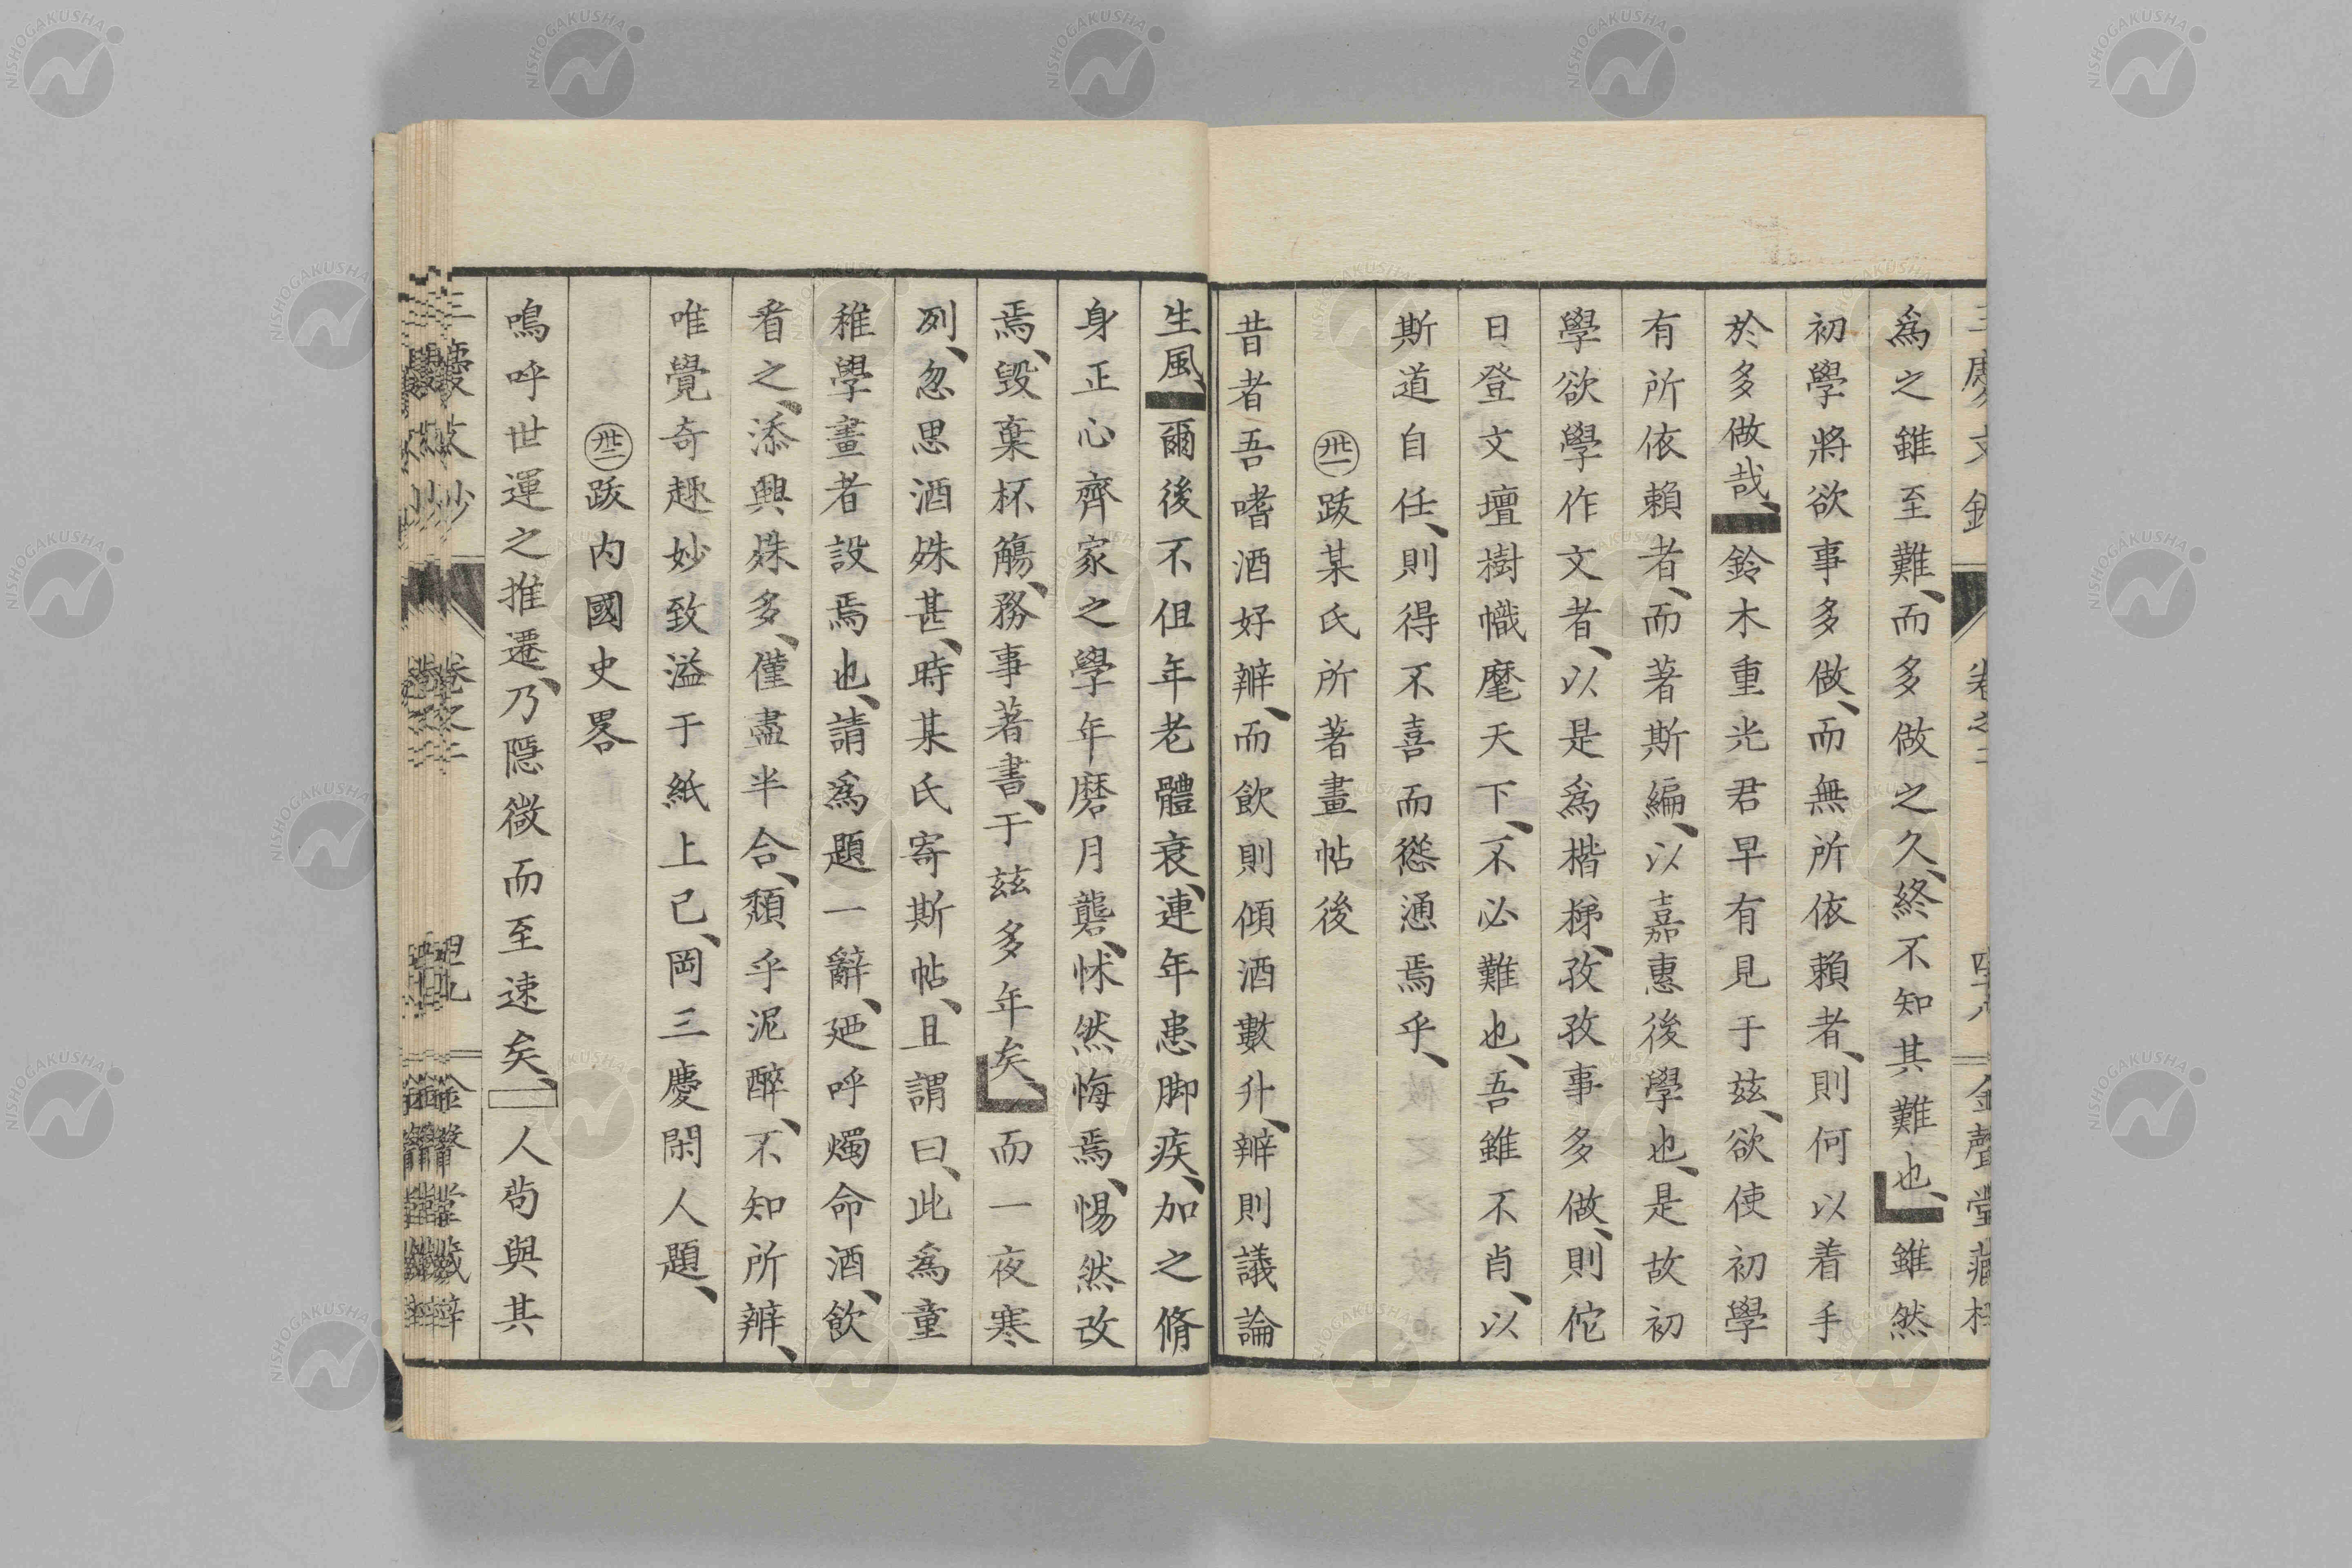 爲之雖至難、而多做之久、終不知其難也、雖然
初學將欲事多做、而無所依賴者、則何以着手
於多做哉、鈴木重光君早有見于兹、欲使初學
有所依賴者、而著斯編、以嘉惠後學也、是故初
學欲學作文者、以是爲楷梯、孜孜事多做、則佗
日登文壇樹幟麾天下、不必難也、吾雖不肖、以
斯道自任、則得不喜而慫慂焉乎、
㊂跋某氏所著畫帖後
昔者吾嗜酒好辨、而飲則傾酒數升、辨則議論
生風、爾後不但年老體衰、連年患脚疾、加之脩
身正心齊家之學年磨月礱、怵然悔焉、惕然改
焉、毀棄杯觴、務事著書、于兹多年矣、而一夜寒
冽、忽思酒殊甚、時某氏寄斯帖、且謂曰、此爲童
稚學畫者設焉也、請爲題一辭、廼呼燭命酒、飲
看之、添興殊多、僅盡半合、頹乎泥醉、不知所辨、
唯覺奇趣妙致溢于紙上已、岡三慶閑人題、
跋内國史畧
鳴呼世運之推遷、乃隱微而至速矣、人茍與其
三慶文鈔 卷之二 四九 金聲堂藏梓